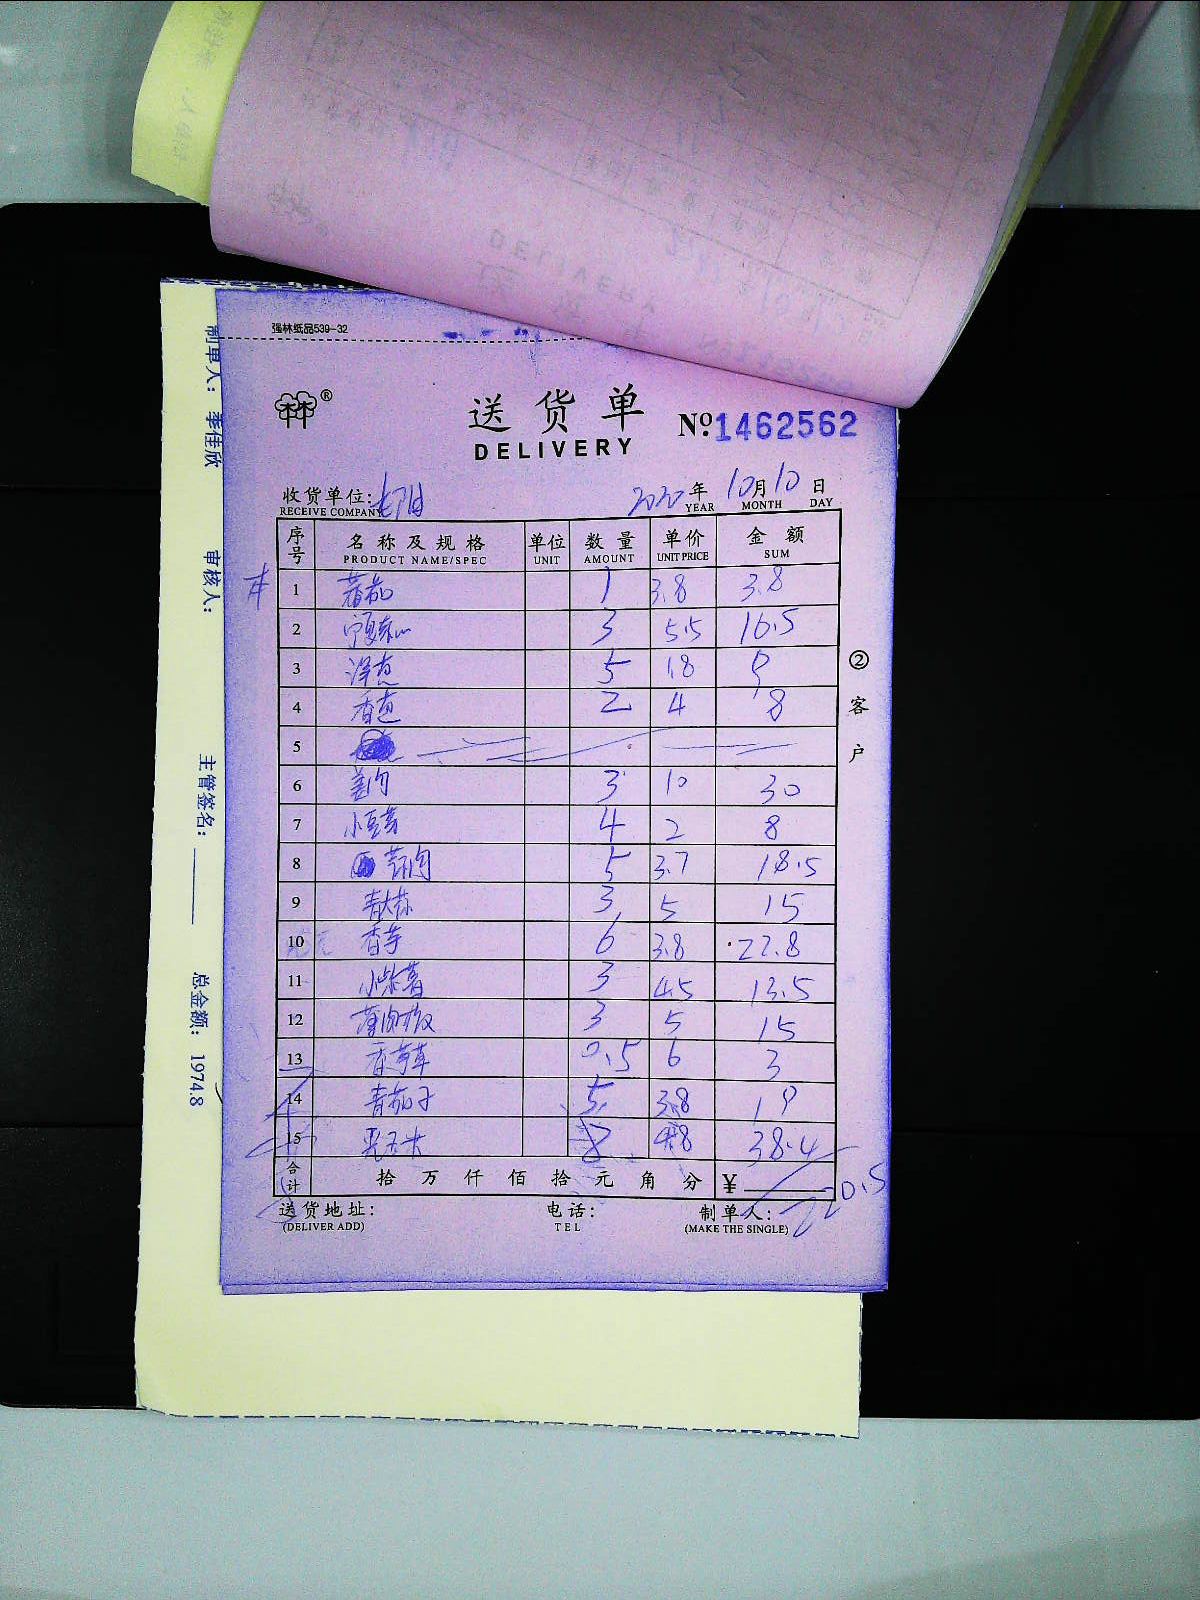 强林纸品539-32
送货单
DELIVERY
№1462562
收货单位:
RECEIVE COMPANY
2020年10月10日
YEAR MONTH DAY
序号 名称及规格 单位 数量 单价 金额
PRODUCT NAME/SPEC UNIT AMOUNT UNIT PRICE SUM
1 蕃茄 1 3.8 3.8
2 3 5.5 16.5
3 洋葱 5 1.8 9
4 香 2 4 8
5
6 姜肉 3 10 30
7 小豆芽 4 2 8
8 肉 5 3.7 18.5
9 青大 3 5 15
10 香芋 6 3.8 22.8
11 小紫薯 3 4.5 13.5
12 3 5 15
13 香茅草 0.5 6 3
14 青茄子 5 3.8 19
15 8 4.8 38.4
合计 拾万仟佰拾元角分 ¥ 220.5
送货地址: 电话: 制单人:
(DELIVER ADD) TEL (MAKE THE SINGLE)
②客户
制单人: 季佳欣 审核人: 主管签名: 总金额: 1974.8